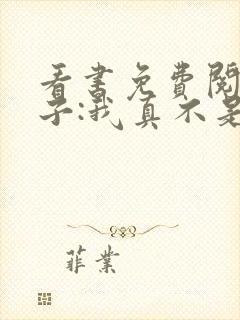 看書免費閱
子:我真不是
菲業